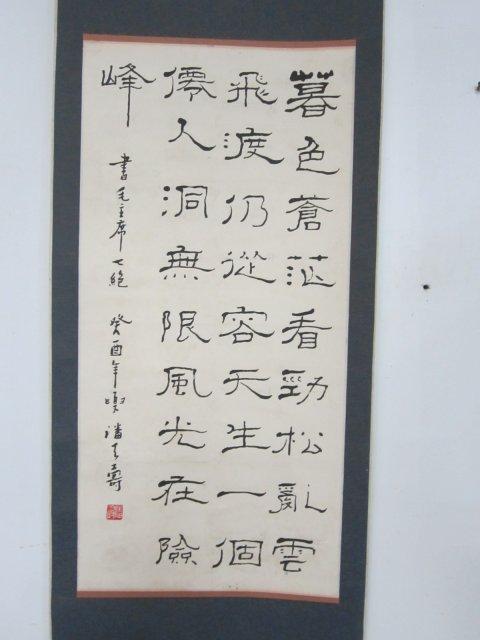 暮色蒼茫看勁松亂雲
飛渡仍從容天生一個
僊人洞無限風光在險
峰
書毛主席七絕 癸酉年 潘天壽